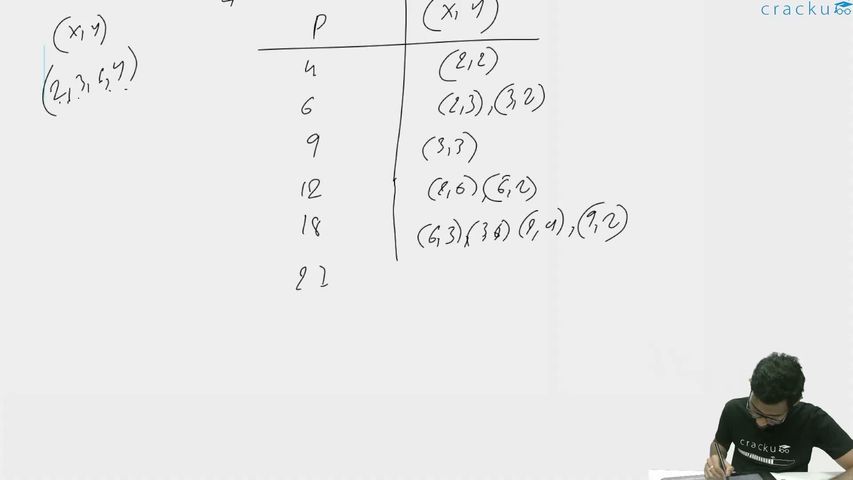 cracku
(x, y)
P (x, y)
(2, 3, 6, 9)
4 (2,2)
6 (2,3), (3,2)
9 (3,3)
12 (2,6) (6,2)
18 (6,3), (3,6) (2,9), (9,2)
27
cracku